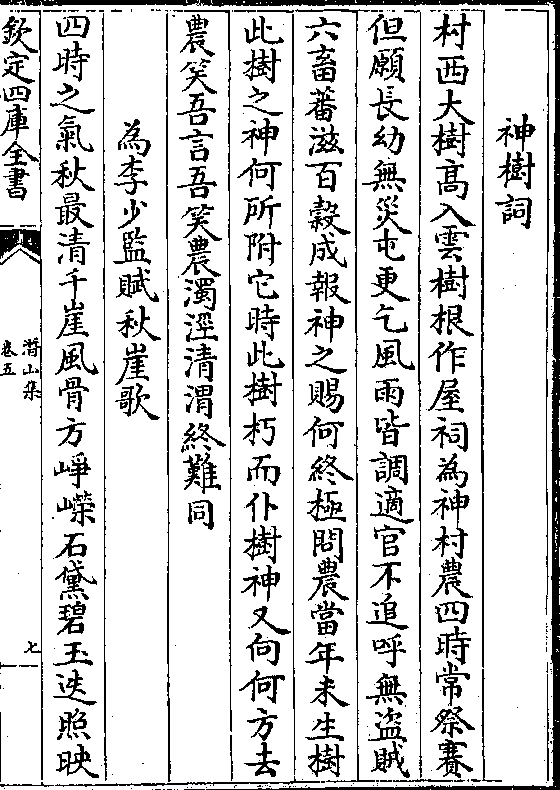 神樹詞
村西大樹高入雲樹根作屋祠為神村農四時常祭賽
但願長幼無災屯更乞風雨皆調適官不追呼無盜賊
六畜蕃滋百穀成報神之賜何終極問農當年未生樹
此樹之神何所附它時此樹朽而仆樹神又向何方去
農笑吾言吾笑農濁涇清渭終難同
為李少監賦秋崖歌
四時之氣秋最清千崖風骨方崢嶸石黛碧玉迭照映
欽定四庫全書
潛山集
卷五
七